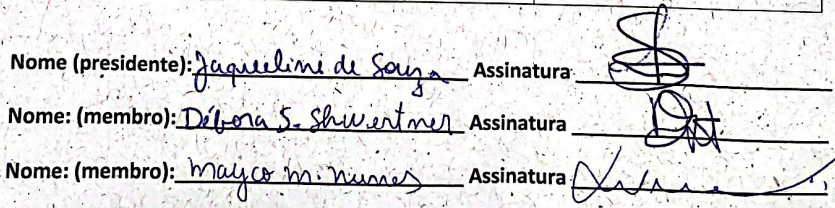 Nome (presidente): Jaqueline de Souza Assinatura
Nome: (membro): Débora S. Shwertner Assinatura
Nome: (membro): Mayco M. Nunes Assinatura